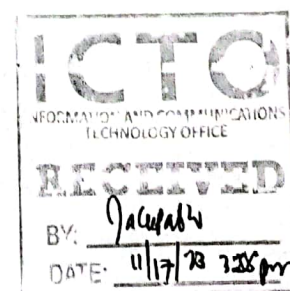 ICTO
INFORMATION AND COMMUNICATIONS
TECHNOLOGY OFFICE
RECEIVED
BY:
DATE: 11/17/23